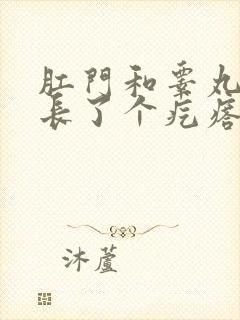 肛門和睾丸
長了个疙瘩
沐蘆